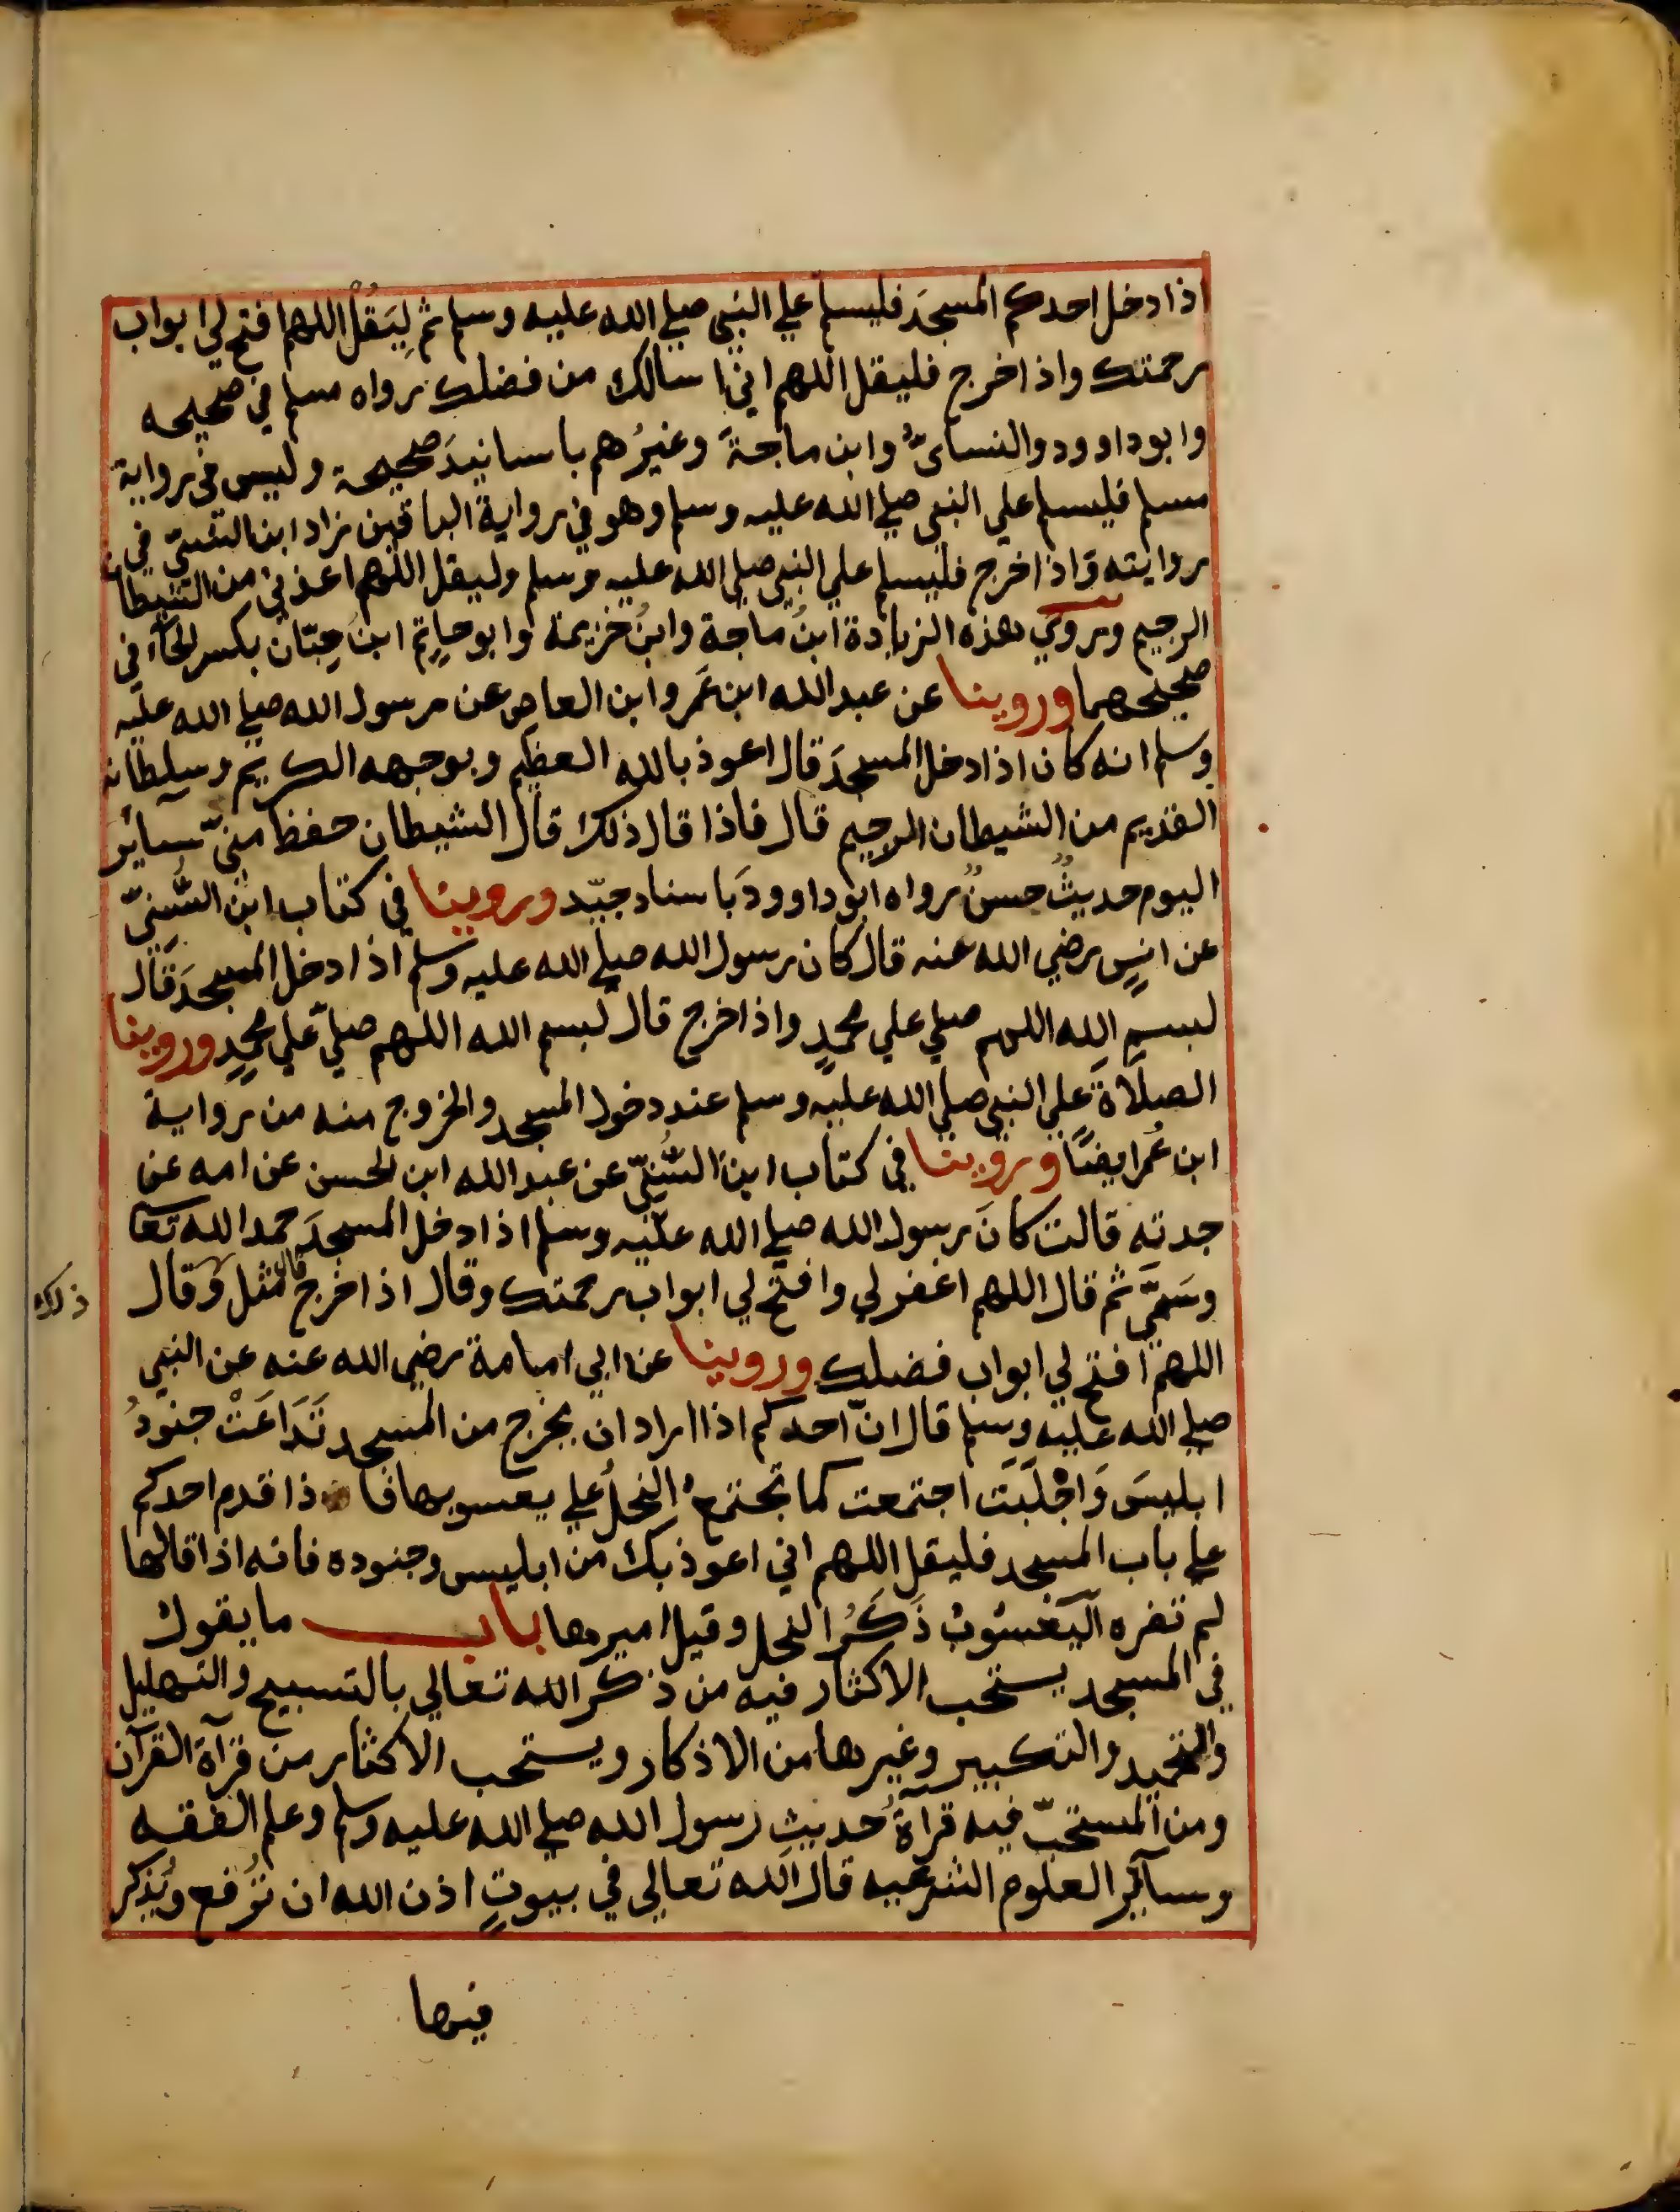 اذا دخل احدكم المسجدَ فليسلم علي النبي صلي الله عليه وسلم ثم ليَقُل اللهم افتح لي ابواب
رحمتك واذا خرج فليقل اللهم اني اسالك من فضلك رواه مسلم في صحيحه
وابو داوود والنسائيُّ وابن ماجةَ وغيرُهم باسانيدَ صحيحة وليس في رواية
مسلم فليسلم علي النبي صلي الله عليه وسلم وهو في رواية الباقين زاد ابن السني في
روايته واذا خرج فليسلم علي النبي صلي الله عليه وسلم وليقل اللهم اعذني من الشيطان
الرجيم وروي هذه الزيادة ابنُ ماجة وابنُ خزيمة وابو حاتِم ابنُ حِبّان بكسر الحآء في
صحيحهما وروينا عن عبد الله ابن عَمرو ابن العاص عن رسول الله صلي الله عليه
وسلم انه كان اذا دخل المسجدَ قال اعوذ بالله العظيم وبوجهه الكريم وسلطانه
القديم من الشيطان الرجيم قال فاذا قال ذلك قال الشيطان حفظ منيّ سائرَ
اليوم حديثٌ حسنٌ رواه ابو داوودَ باسناد جيّد وروينا في كتاب ابن السُّنيّ
عن انسٍ رضي الله عنه قال كان رسول الله صلي الله عليه وسلم اذا دخل المسجدَ قال
بسم الله اللهم صلي علي محمدٍ واذا خرج قال بسم الله اللهم صليّ علي محمدٍ وروينا
الصلاةَ علي النبي صلي الله عليه وسلم عند دخول المسجد والخروج منه من رواية
ابن عُمر ايضًا وروينا في كتاب ابن السُّنيّ عن عبد الله ابن الحسن عن امه عن
جدته قالت كانَ رسول الله صلي الله عليه وسلم اذا دخل المسجدَ حمد الله تعا
وسَميَّ ثم قال اللهم اغفر لي وافتح لي ابواب رحمتك وقال اذا خرج قال مثل ذلك وقال
اللهم افتح لي ابواب فضلك وروينا عن ابي امامة رضي الله عنه عن النبي
صلي الله عليه وسلم قال انّ احدكم اذا اراد ان يخرج من المسجد تَدَاعَتْ جنودُ
ابليسَ وَاجْلَبَت اجتمعت كما تجتمعُ النحلُ علي يعسوبها فا ذا قدم احدكم
علي باب المسجد فليقل اللهم اني اعوذ بك من ابليس وجنوده فانه اذا قالها
لم تضره اليَعْسُوبُ ذَكَرُ النحل وقيل اميرها بابـــــ ما يقول
في المسجد يستحب الاكثار فيه من ذكر الله تعالي بالتسبيح والتهليل
والتحميد والتكبير وغيرها من الاذكار ويستحب الاكثار من قرآة القرآن
ومن المستحبّ فيه قرآةُ حديثِ رسول الله صلي الله عليه وسلم وعلم الفقه
وسآئر العلوم الشرعيه قال الله تعالي في بيوتٍ اذن الله ان تُرفع ويُذكر
فيها